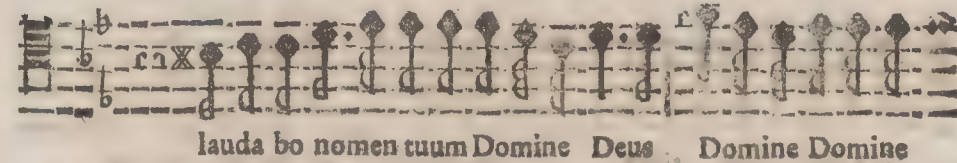 lauda bo nomen tuum Domine Deus Domine Domine